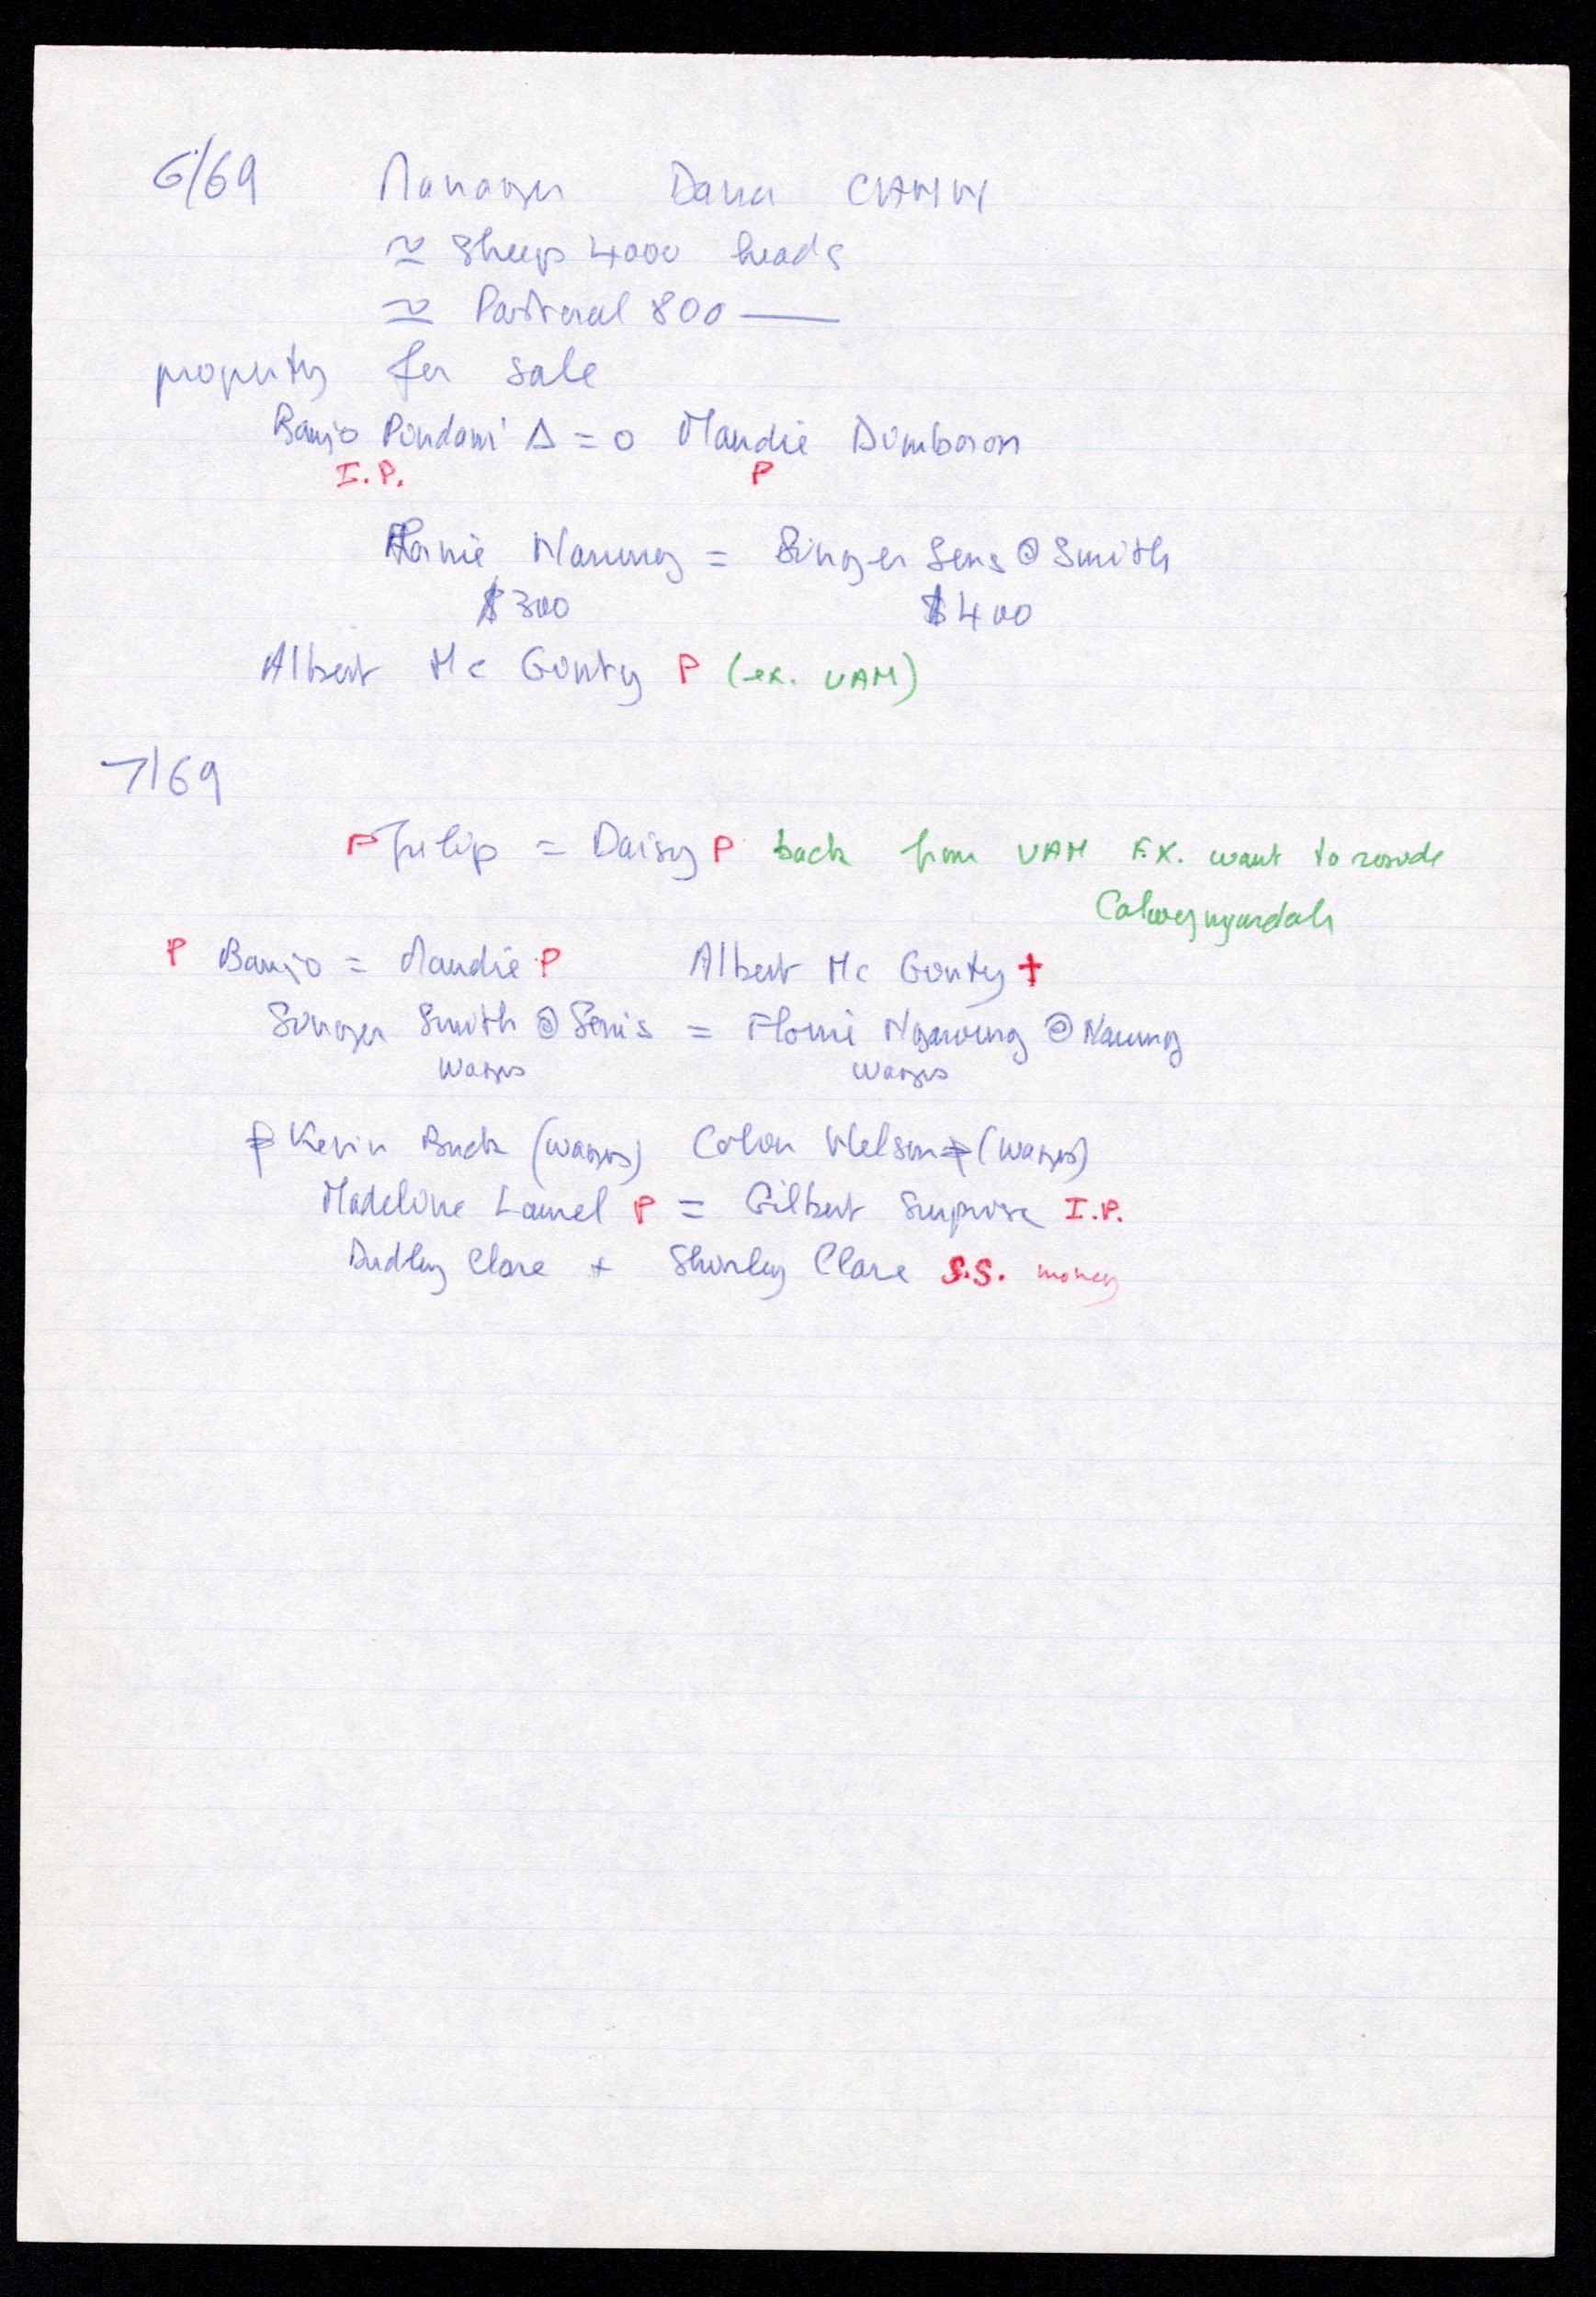 6/69 Manager Dana
≃ Sheep 4000 heads
≃ Pastoral 800 ——
property for sale
Banjo Pindani Δ = o Maudie Dumboron
I.P. P
Florrie Narung = Singer Sens @ Smith
$300 $400
Albert Mc Ginty P (ex. UAM)
7/69
P = Daisy P back from UAM F.X. want to
P Banjo = Maudie P Albert Mc Ginty †
Singer Smith @ Senis = Florrie @ Narung
wages wages
P Kevin Buck (wages) Colin Nelson P (wages)
Madeline Laurel P = Gilbert Surprise I.P.
Dudley Clare + Shirley Clare S.S. money